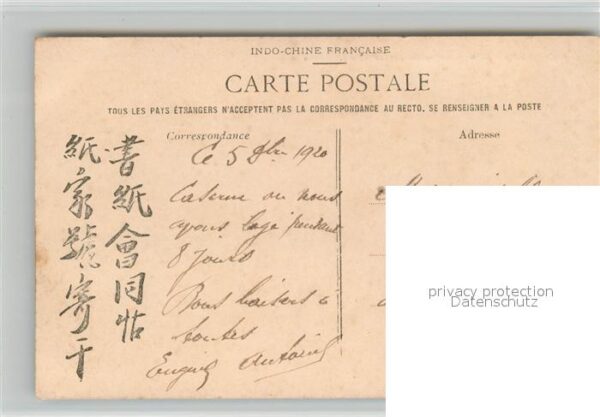 INDO-CHINE FRANÇAISE
CARTE POSTALE
TOUS LES PAYS ÉTRANGERS N'ACCEPTENT PAS LA CORRESPONDANCE AU RECTO. SE RENSEIGNER A LA POSTE
Correspondance
Adresse
Ce 5 1920
Caserne ou nous
ayons logé pendant
8 jours
Bons baisers à
toutes
Antoine
書紙會同帖
紙家號寄干
privacy protection
Datenschutz